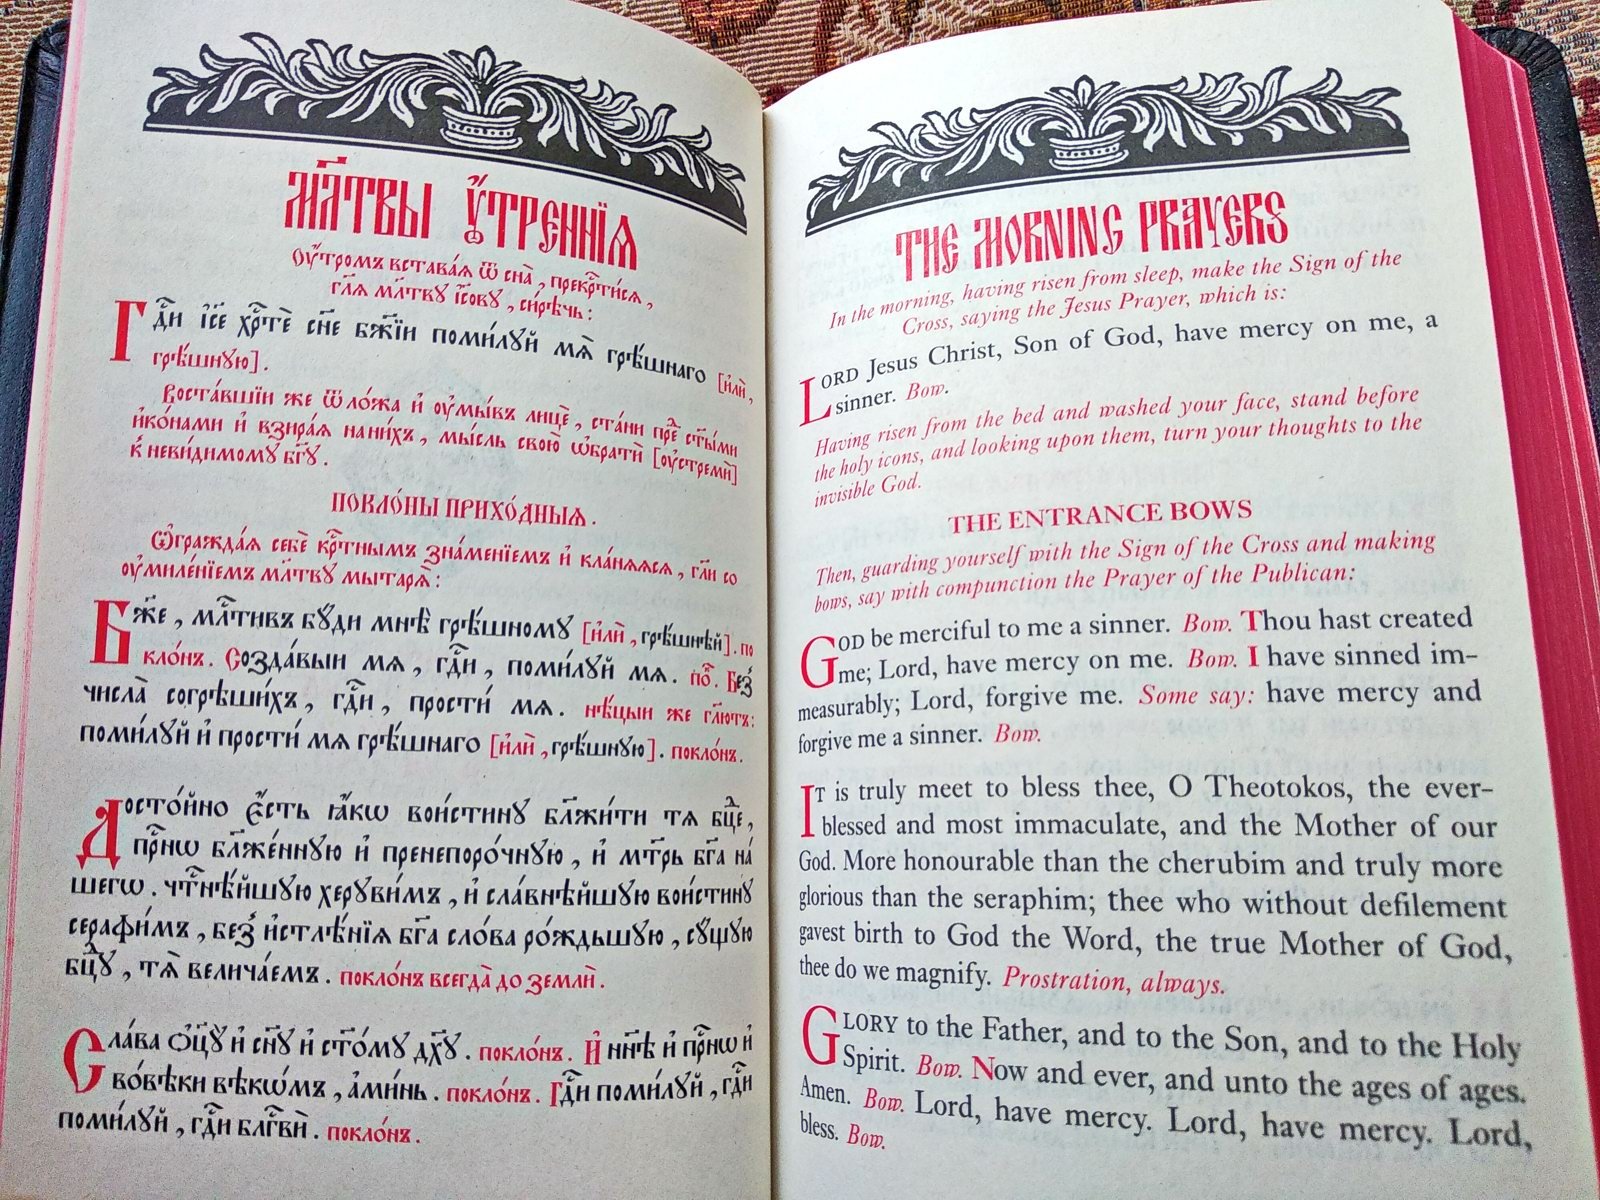 Мл҃твы ᲂу҆́трєннїѧ
Оу҆́тромъ вставаѧ ѿ сна̀, прекрⷭ҇тисѧ,
гл҃ѧ мл҃тву і҆сову, си́рѣчь:
Гдⷭ҇и і҆се хрⷭ҇тѐ сн҃е бж҃їи поми́лꙋй мѧ̀ грѣ́шнаго [и҆лѝ,
грѣ́шнꙋю].
Воста́вшїи же ѿ ло́жа и҆ ᲂу҆мы́въ лицѐ, ста́ни преⷣ ст҃ы́ми
и҆ко́нами и҆ взира́ѧ на ни́хъ, мы́сль свою̀ ѡ҆брати̇̀ [ᲂу҆стремѝ]
к̾ неви́димому бг҃ꙋ.
ПОКЛО́НЫ ПРИХО́ДНЫѦ.
Ѡ҆гражда́ѧ себѐ крⷭ҇тнымъ зна́менїемъ и҆ кла́нѧѧсѧ, гл҃и со
ᲂу҆миле́нїемъ мл҃твꙋ мытарѧ̀:
Бж҃е, млⷭ҇тивъ бꙋди мнѣ̀ грѣ́шномꙋ [и҆лѝ, грѣ́шнѣй]. по
кло́нъ. Созда́выи мѧ, гдⷭ҇и, поми́лꙋй мѧ. поⷦ҇. Без̾
числа̀ согрѣши́хъ, гдⷭ҇и, прости́ мѧ. нѣ́цыи же гл҃ютъ:
поми́лꙋй и҆ прости́ мѧ грѣ́шнаго [и҆лѝ, грѣ́шнꙋю]. покло́нъ.
Досто́йно є҆́сть ꙗ҆́кѡ вои́стинꙋ бл҃жи́ти тѧ бцⷣе,
прⷭ҇нѡ бл҃же́ннꙋю и҆ пренепоро́чнꙋю, и҆ мт҃рь бг҃а на́
шегѡ. чтⷭ҇нѣ́йшꙋю херꙋви́мъ, и҆ сла́внѣйшꙋю вои́стинꙋ
серафи́мъ, без̾ и҆стлѣ́нїѧ бг҃а сло́ва ро́ждьшꙋю, сꙋ́щꙋю
бцⷣꙋ, тѧ̀ велича́емъ. покло́нъ всегда̀ до землѝ.
Сла́ва ѻ҆ц҃ꙋ и҆ сн҃ꙋ и҆ ст҃о́мꙋ дх҃ꙋ. покло́нъ. И҆ нн҃ѣ и҆ прⷭ҇нѡ и҆
во́вѣки вѣкѡ́мъ, а҆ми́нь. покло́нъ. Гдⷭ҇и поми́лꙋй, гдⷭ҇и
поми́лꙋй, гдⷭ҇и блгⷭ҇вѝ. покло́нъ.
THE MORNING PRAYERS
In the morning, having risen from sleep, make the Sign of the
Cross, saying the Jesus Prayer, which is:
LORD Jesus Christ, Son of God, have mercy on me, a
sinner. Bow.
Having risen from the bed and washed your face, stand before
the holy icons, and looking upon them, turn your thoughts to the
invisible God.
THE ENTRANCE BOWS
Then, guarding yourself with the Sign of the Cross and making
bows, say with compunction the Prayer of the Publican:
GOD be merciful to me a sinner. Bow. Thou hast created
me; Lord, have mercy on me. Bow. I have sinned im-
measurably; Lord, forgive me. Some say: have mercy and
forgive me a sinner. Bow.
IT is truly meet to bless thee, O Theotokos, the ever-
blessed and most immaculate, and the Mother of our
God. More honourable than the cherubim and truly more
glorious than the seraphim; thee who without defilement
gavest birth to God the Word, the true Mother of God,
thee do we magnify. Prostration, always.
GLORY to the Father, and to the Son, and to the Holy
Spirit. Bow. Now and ever, and unto the ages of ages.
Amen. Bow. Lord, have mercy. Lord, have mercy. Lord,
bless. Bow.